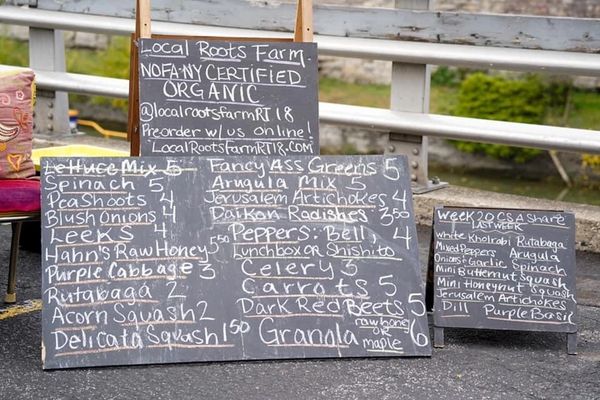 Local Roots Farm
NOFA-NY CERTIFIED
ORGANIC
@localrootsfarmRT18
Preorder w/us online!
LocalRootsFarmRT18.COM
Lettuce Mix 5
Spinach 5
PeaShoots 4
Blush Onions 4
Leeks 4
Hahn's Raw Honey 5.50
Purple Cabbage 3
Rutabaga 2
Acorn Squash 2
Delicata Squash 1.50
Fancy Ass Greens 5
Arugula Mix 5
Jerusalem Artichokes 4
Daikon Radishes 3.50
Peppers: Bell, 4
Lunchbox or Shishito
Celery 3
Carrots 5
Dark Red Beets 5
Granola raw honey or maple 6
Week 20 CSA Share
Last Week
White Kholrabi Rutabaga
Mixed Peppers Arugula
Onions+Garlic Spinach
Mini Butternut Squash
Mini Honeynut Squash
Jerusalem Artichokes
Dill Purple Basil